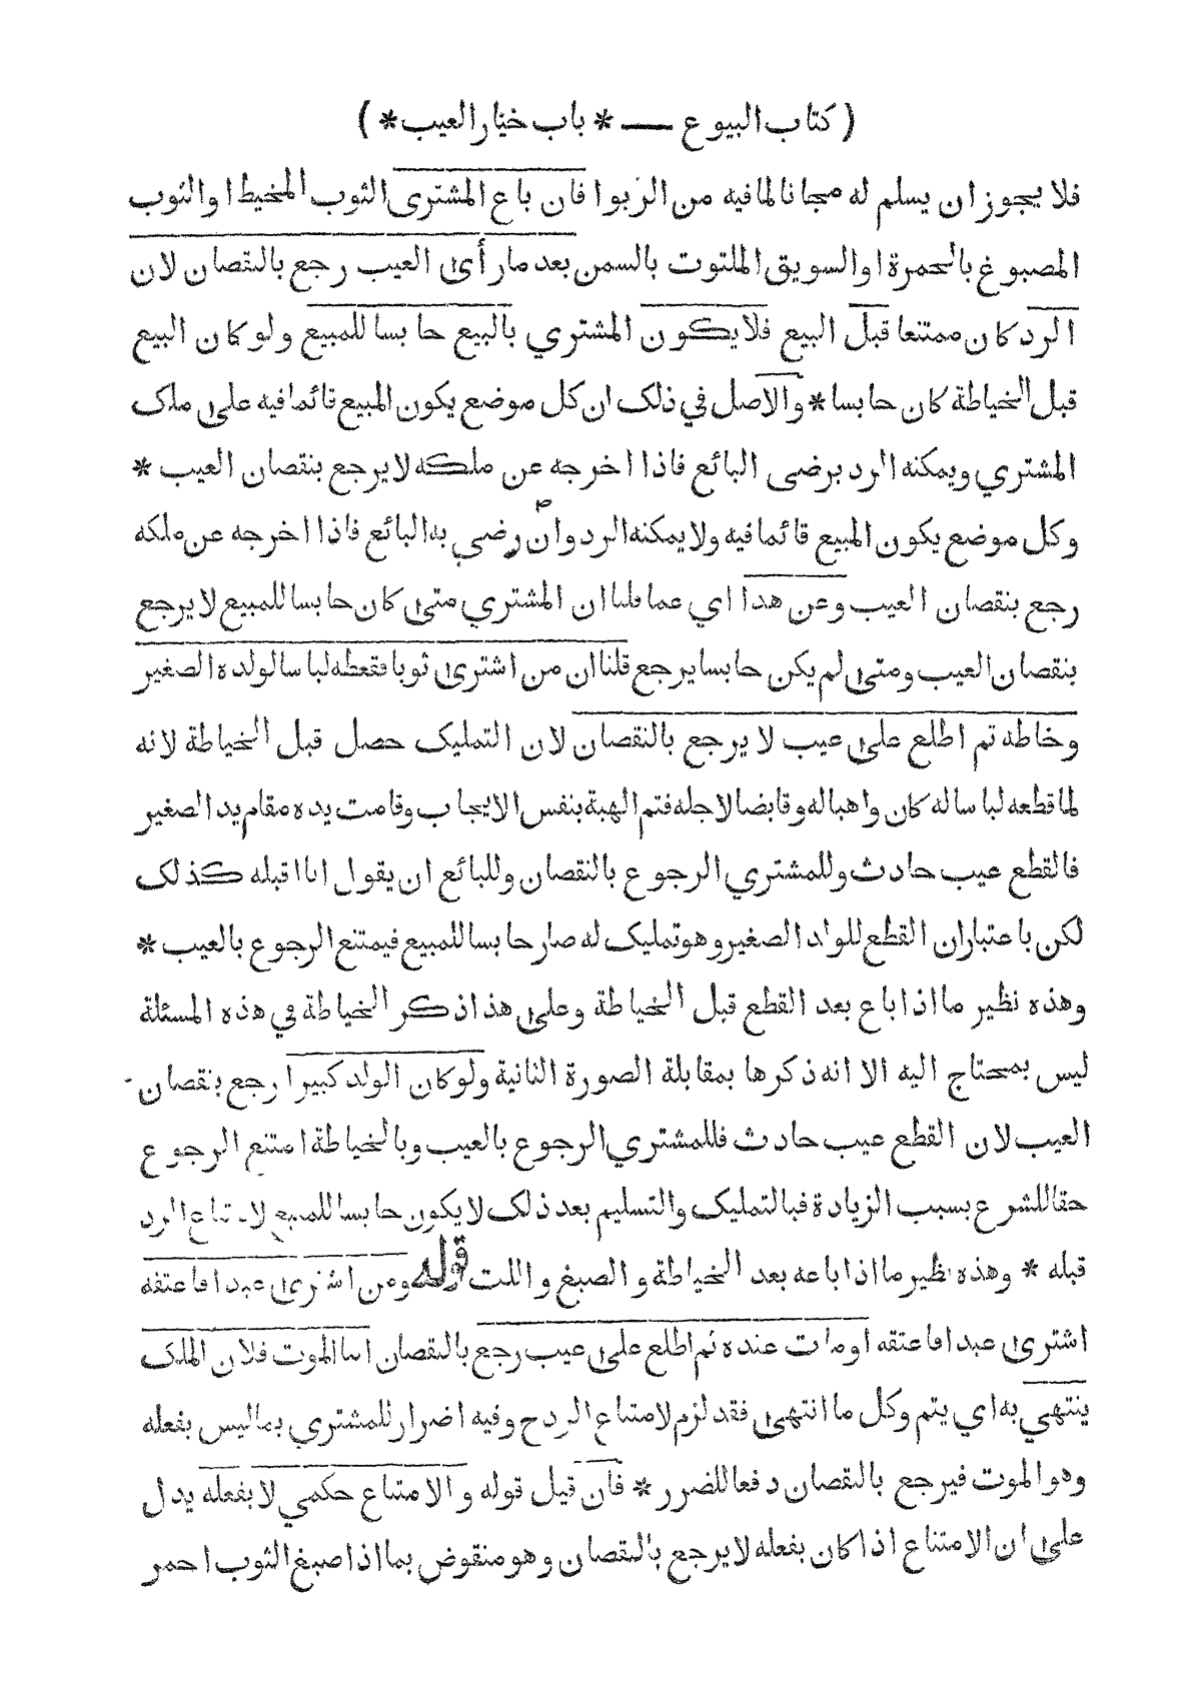 ( كتاب البيوع — * باب خيار العيب * )
فلا يجوز ان يسلم له مجانا لما فيه من الربوا فان باع المشترى الثوب المخيط او الثوب
المصبوغ بالحمرة او السويق الملتوت بالسمن بعد ما رأى العيب رجع بالنقصان لان
الرد كان ممتنعا قبل البيع فلا يكون المشتري بالبيع حابسا للمبيع ولو كان البيع
قبل الخياطة كان حابسا * والاصل في ذلك ان كل موضع يكون المبيع قائما فيه على ملك
المشتري ويمكنه الرد برضى البائع فاذا اخرجه عن ملكه لا يرجع بنقصان العيب *
وكل موضع يكون المبيع قائما فيه ولا يمكنه الرد وان رضي به البائع فاذا اخرجه عن ملكه
رجع بنقصان العيب وعن هذا اي عما قلنا ان المشتري متى كان حابسا للمبيع لا يرجع
بنقصان العيب ومتى لم يكن حابسا يرجع قلنا ان من اشترى ثوبا فقطعه لباسا لولده الصغير
وخاطه ثم اطلع على عيب لا يرجع بالنقصان لان التمليك حصل قبل الخياطة لانه
لما قطعه لباسا له كان واهبا له وقابضا لاجله فتم الهبة بنفس الايجاب وقامت يده مقام يد الصغير
فالقطع عيب حادث وللمشتري الرجوع بالنقصان وللبائع ان يقول انا اقبله كذلك
لكن باعتبار ان القطع للولد الصغير وهو تمليك له صار حابسا للمبيع فيمتنع الرجوع بالعيب *
وهذه نظير ما اذا باع بعد القطع قبل الخياطة وعلى هذا ذكر الخياطة في هذه المسئلة
ليس بمحتاج اليه الا انه ذكرها بمقابلة الصورة الثانية ولو كان الولد كبيرا رجع بنقصان
العيب لان القطع عيب حادث فللمشتري الرجوع بالعيب وبالخياطة امتنع الرجوع
حقا للشرع بسبب الزيادة فبالتمليك والتسليم بعد ذلك لا يكون حابسا للمبيع لامتناع الرد
قبله * وهذه نظير ما اذا باعه بعد الخياطة و الصبغ و اللت قوله ومن اشترى عبدا فاعتقه
اشترى عبدا فاعتقه او مات عنده ثم اطلع على عيب رجع بالنقصان اما الموت فلان الملك
ينتهي به اي يتم وكل ما انتهى فقد لزم لامتناع الرد ح وفيه اضرار للمشتري بما ليس بفعله
وهو الموت فيرجع بالنقصان دفعا للضرر * فان قيل قوله و الامتناع حكمي لا بفعله يدل
على ان الامتناع اذا كان بفعله لا يرجع بالنقصان وهو منقوض بما اذا صبغ الثوب احمر